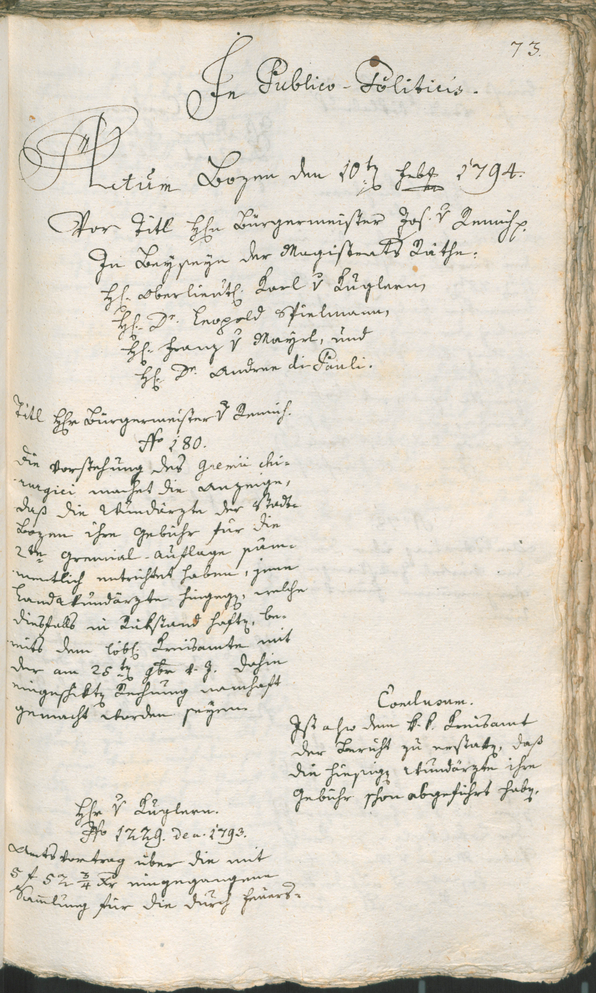 73.
In Publico-Politicis.
Actum Bozen den 10ten Febr 1794.
Vor Titl Hn Bürgermeister Jos. v Remich
In Beyseyn der Magistrats Räthe:
H. Oberlieut. Karl v Kuglern,
H. Dr. Leopold Spielmann,
H. Franz v Mayrl, und
H. Dr. Andree di Pauli.
Titl Hr Bürgermeister v Remich.
No 180.
die Vorstehung des Gremii chi-
rurgici machet die Anzeige,
daß die Wundärzte der Stadt
Bozen ihre Gebühr für die
2te Gremial-Auflage säm-
mentlich entrichtet haben, jene
Landwundärzte hingegen, welche
diesfalls in Rükstand haften, be-
reits dem löbl Kreisamte mit
der am 25ten 9br v. J. dahin
eingeschikten Rechnung namhaft
gemacht worden seyen
Conclusum.
Ist also dem k. k. Kreisamt
der Bericht zu erstatten, daß
die hiesigen Wundärzte ihre
Gebühr schon abgeführt haben.
Hr v Kuglern.
No 1229. de a. 1793.
Amtsvortrag über die mit
5 f 52 3/4 Xr eingegangene
Sammlung für die durch Feuers-